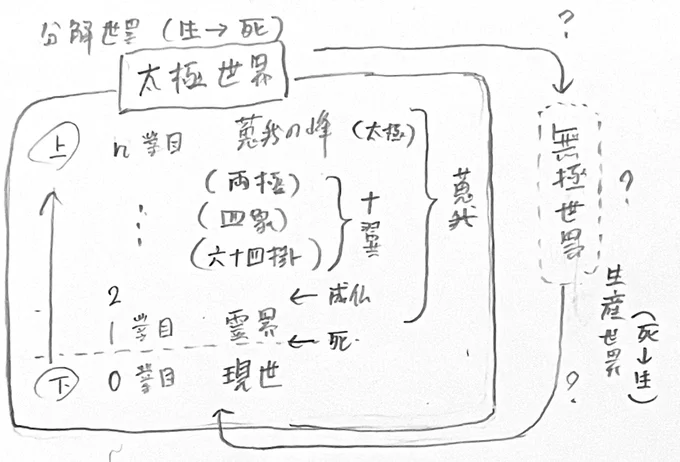 分解世界 (生→死)
太極世界
上
n 目
の峰 (太極)
(両極)
(四象)
(六十四掛)
十翼
2
← 成仏
1 目 霊界
← 死
下
0 目 現世
?
無極世界
?
生産世界
(死→生)
?